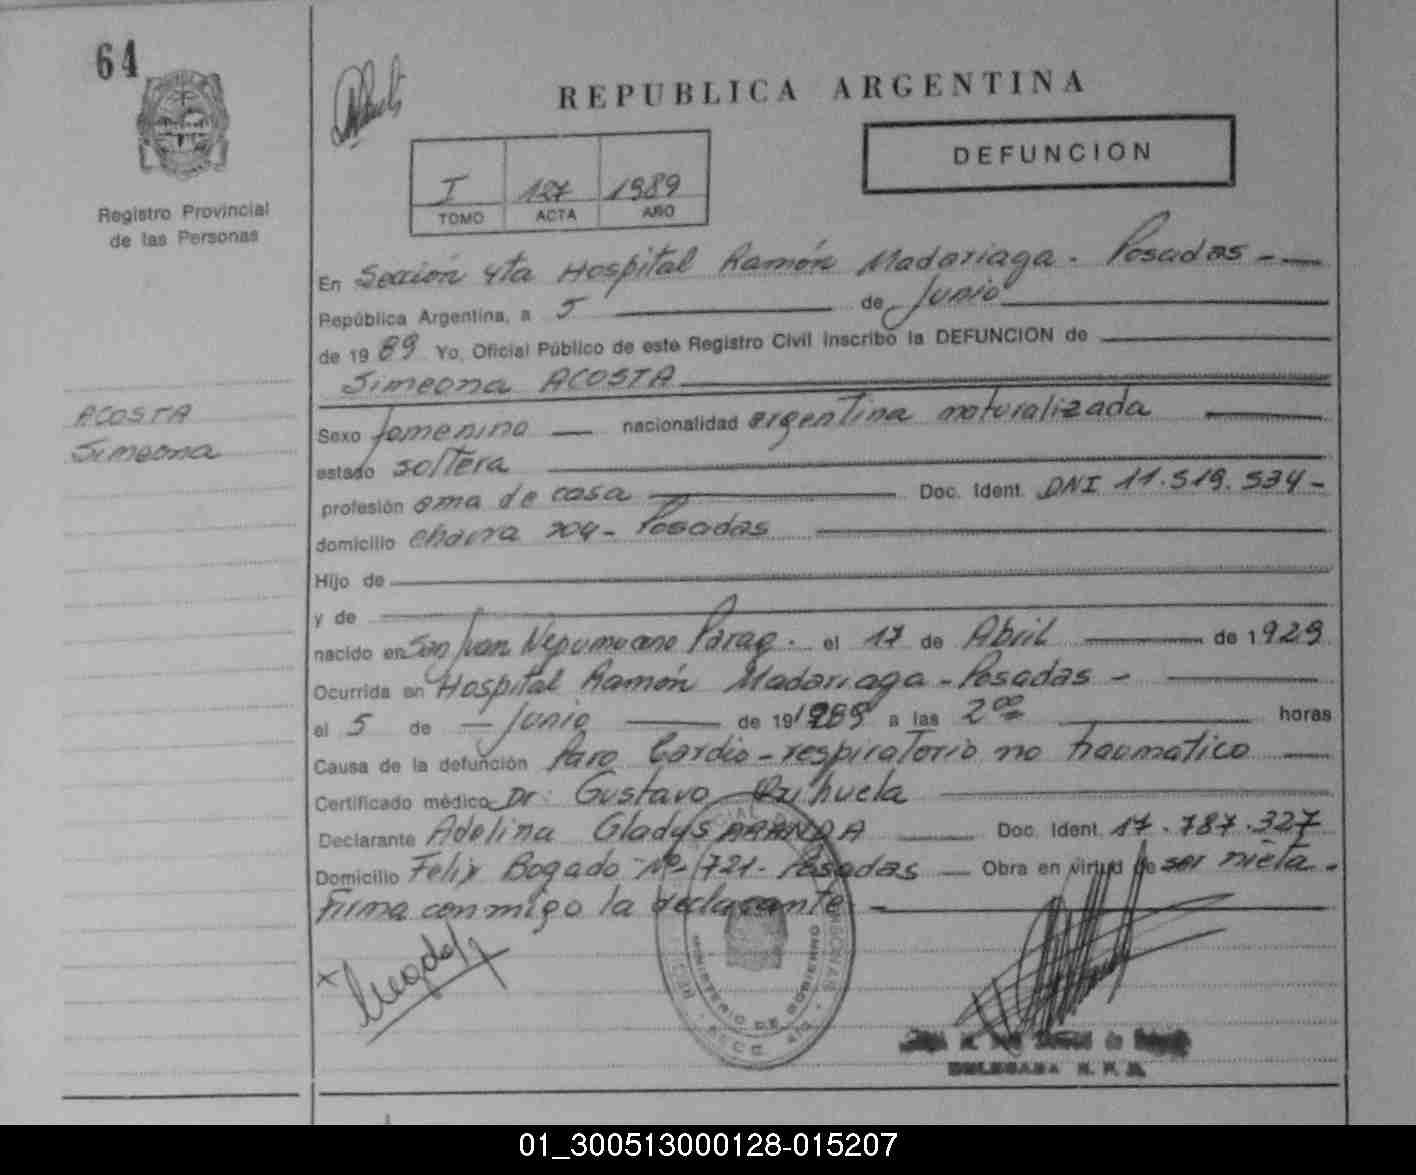 64
REPUBLICA ARGENTINA
DEFUNCION
I 127 1989
TOMO ACTA AÑO
Registro Provincial
de las Personas
En Sección 4ta Hospital Ramón Madariaga - Posadas - —
República Argentina, a 5 — de Junio —
de 19 89 Yo, Oficial Público de este Registro Civil inscribo la DEFUNCION de —
Simeona ACOSTA —
ACOSTA
Simeona
Sexo femenino — nacionalidad argentina naturalizada —
estado soltera —
profesión ama de casa — Doc. Ident. DNI 11.519.534 -
domicilio chacra 204 - Posadas —
Hijo de —
y de —
nacido en San Juan Nepumuceno Parag. el 17 de Abril — de 1929
Ocurrida en Hospital Ramón Madariaga - Posadas - —
el 5 de — Junio — de 19 1989 a las 2 00 — horas
Causa de la defunción Paro Cardio-respiratorio no traumatico —
Certificado médico Dr. Gustavo Orihuela —
Declarante Adelina Gladys ARANDA — Doc. Ident. 17.787.327
Domicilio Felix Bogado Nº 721 - Posadas — Obra en virtud de ser nieta -
Firma conmigo la declarante —
MINISTERIO DE GOBIERNO
01_300513000128-015207